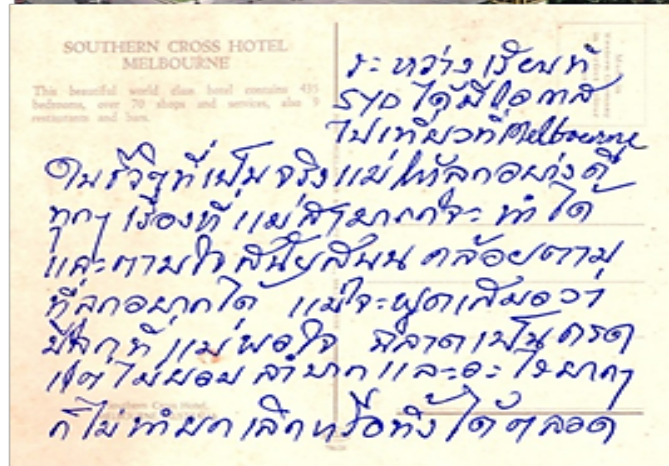 SOUTHERN CROSS HOTEL
MELBOURNE
This beautiful world class hotel contains 435
bedrooms, over 70 shops and services, also 9
restaurants and bars.
ระหว่างเรียนที่
SYD ได้มีโอกาส
ไปเที่ยวที่ Melbourne
ในชีวิตที่เป็นจริงแม่ให้ลูกอย่างดี
ทุกๆ เรื่องที่แม่สามารถจะทำได้
และตามใจสนับสนุน คล้อยตาม
ที่ลูกอยากได้ แม่จะพูดเสมอว่า
มีลูกที่แม่พอใจ ฉลาดเป็นกรด
แต่ไม่ยอมลำบากและอะไรยากๆ
ก็ไม่ทำ เลิกหรือทิ้งได้ตลอด
Southern Cross Hotel,